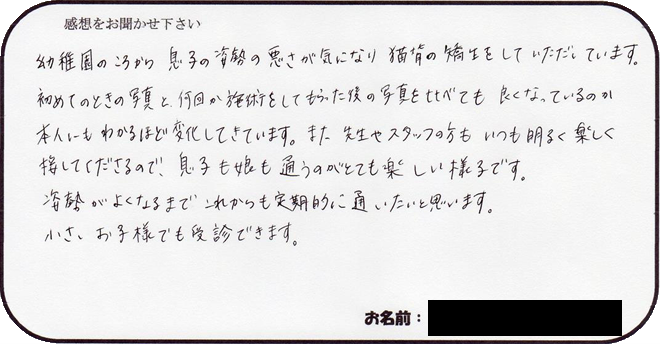 感想をお聞かせ下さい
幼稚園のころから 息子の姿勢の悪さが気になり 猫背の矯正をしていただいています。
初めてのときの写真と、何回か施術をしてもらった後の写真を比べても 良くなっているのが
本人にもわかるほど変化してきています。また 先生やスタッフの方も いつも明るく楽しく
接してくださるので、息子も娘も通うのがとても楽しい様子です。
姿勢がよくなるまで これからも定期的に通いたいと思います。
小さいお子様でも受診できます。
お名前：